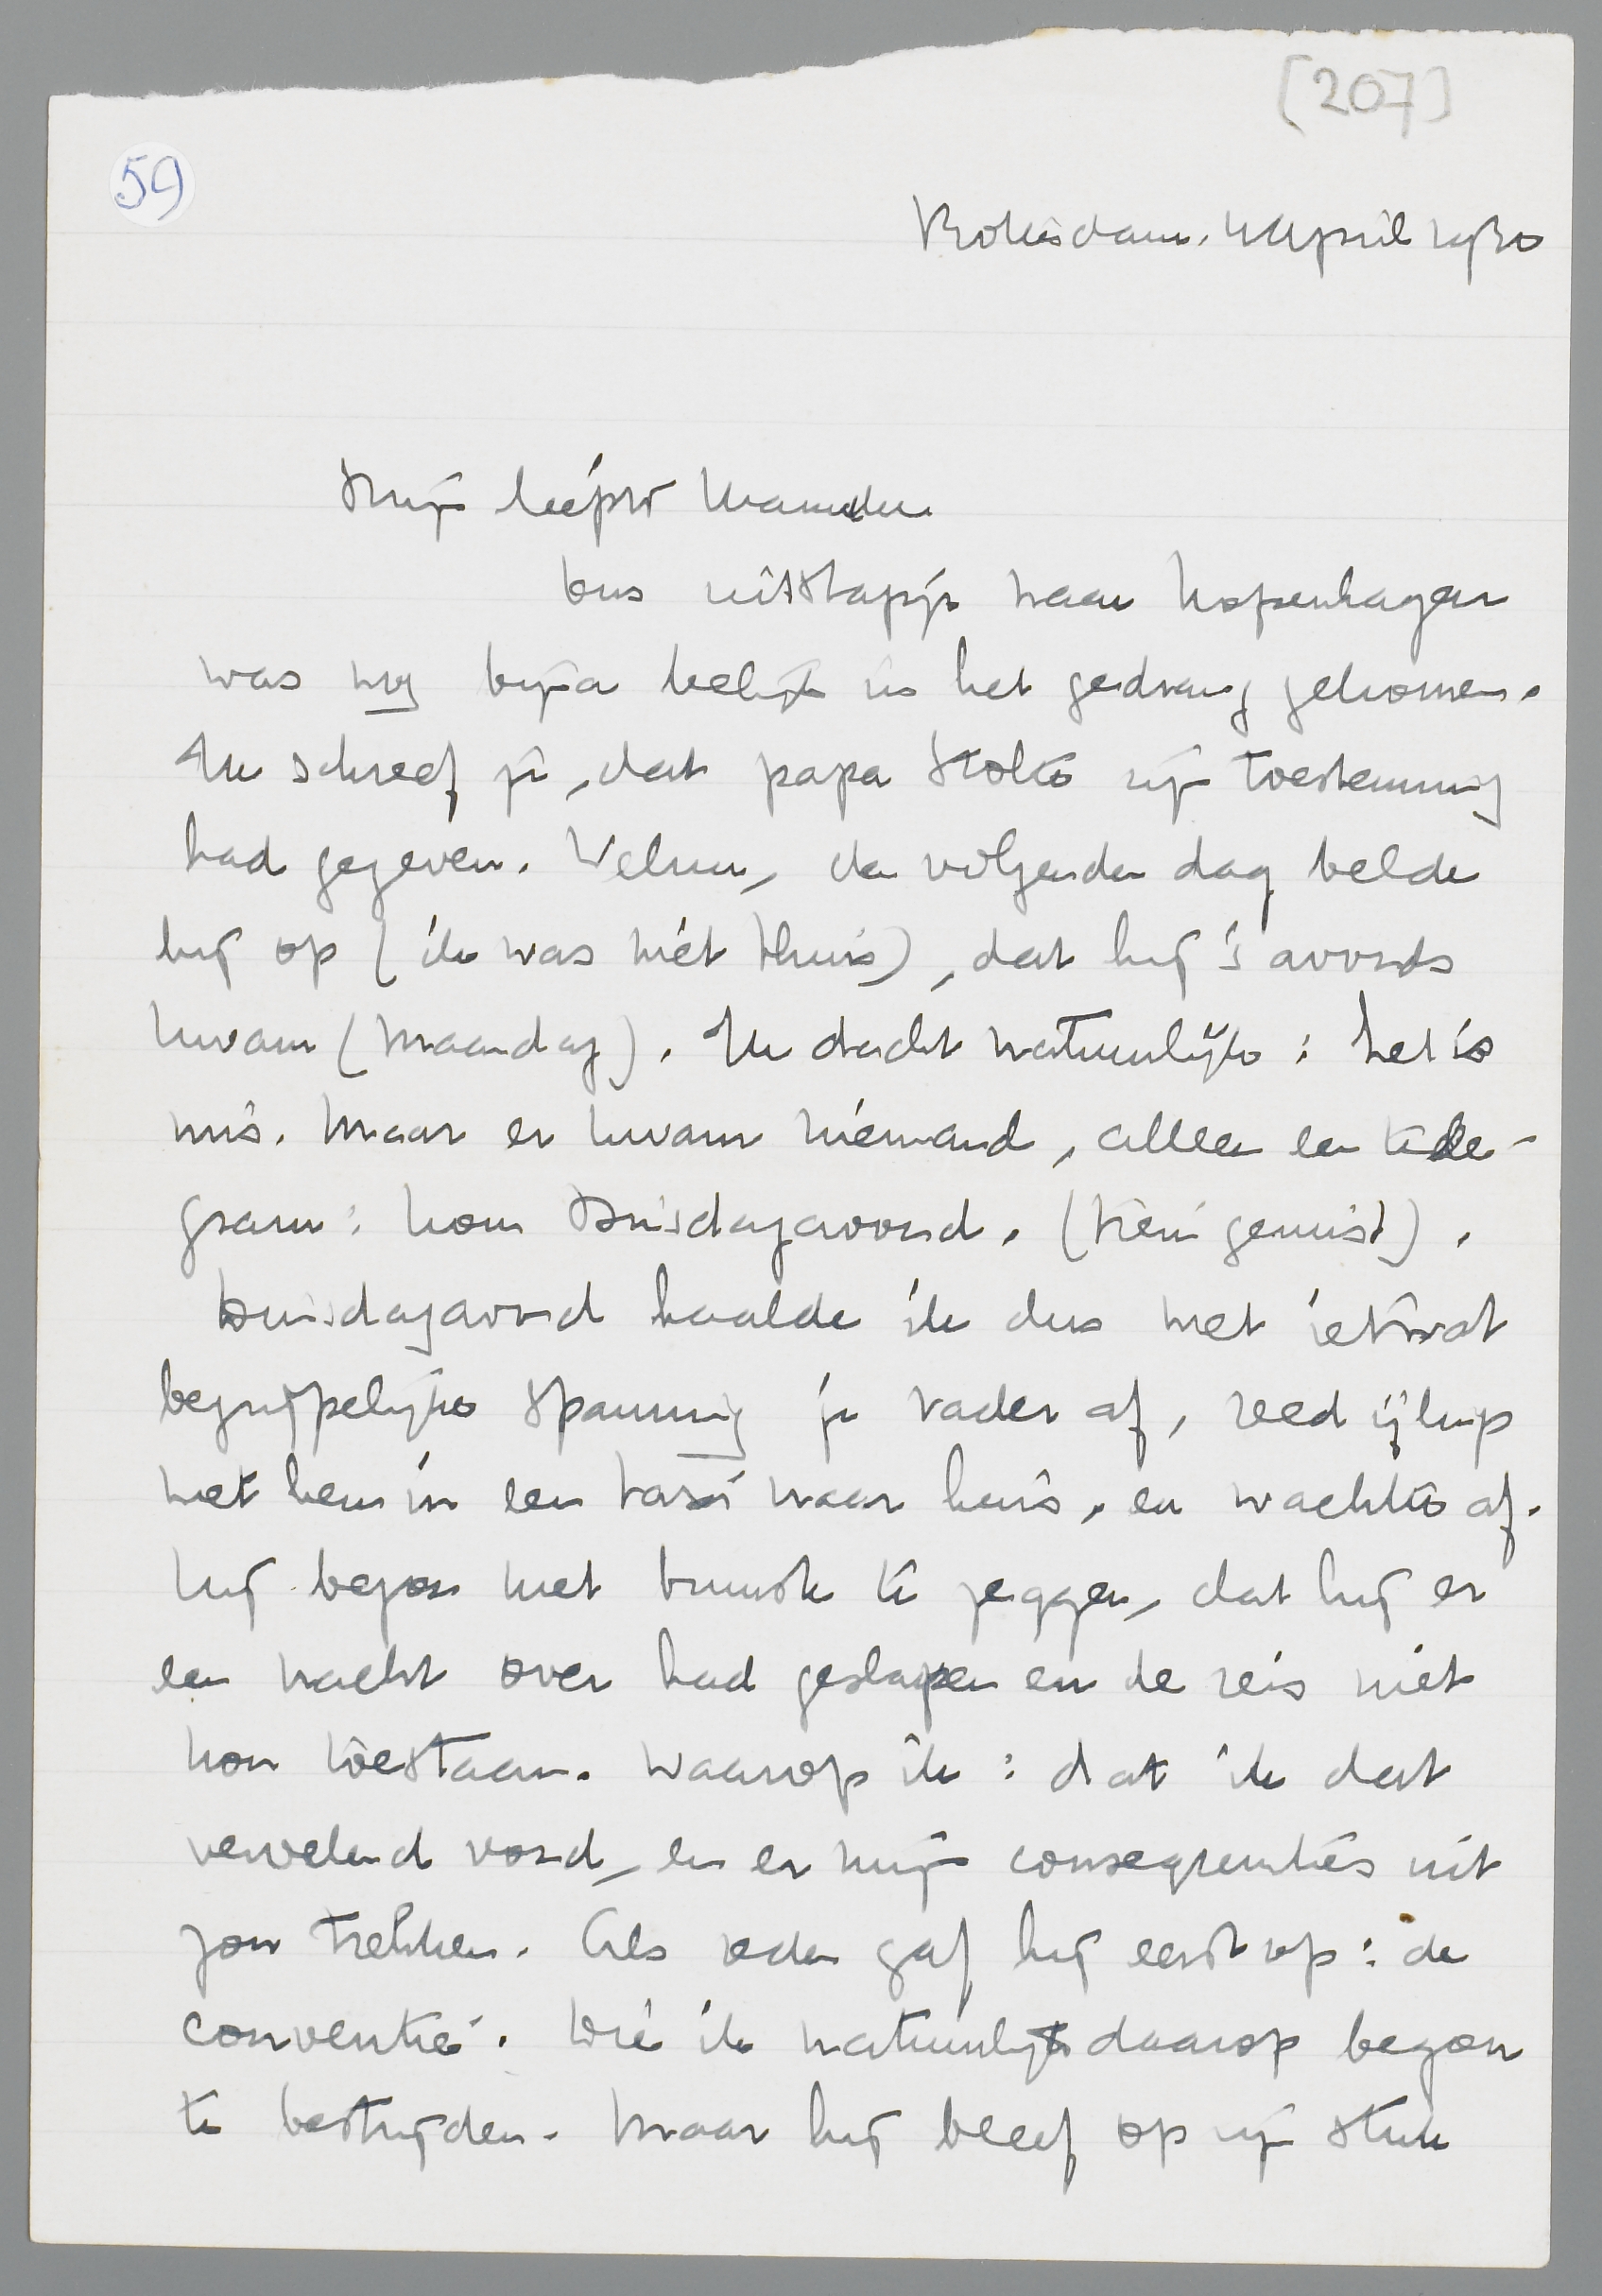 [207]
59
Rotterdam, April 1930
Mijn liefste
Ons uitstapje naar Kopenhagen
was nog bijna leelijk in het gedrang gekomen.
Ik schreef je, dat papa Stolte zijn toestemming
had gegeven. Welnu, de volgende dag belde
hij op (ik was niet thuis), dat hij 's avonds
kwam (Maandag). Ik dacht natuurlijk: het is
mis. Maar er kwam niemand, alleen een tele-
gram: kom Dinsdagavond. (trein gemist).
Dinsdagavond haalde ik dus met ietwat
begrijpelijke spanning je vader af, reed ijlings
met hem in een taxi naar huis, en wachtte af.
Hij begon met brusk te zeggen, dat hij er
een nacht over had geslapen en de reis niet
kon toestaan. Waarop ik: dat ik dat
vervelend vond, en er mijn consequenties uit
zou trekken. Als reden gaf hij eerst op: de
conventie. Die ik natuurlijk daarop begon
te bestrijden. Maar hij bleef op zijn stuk